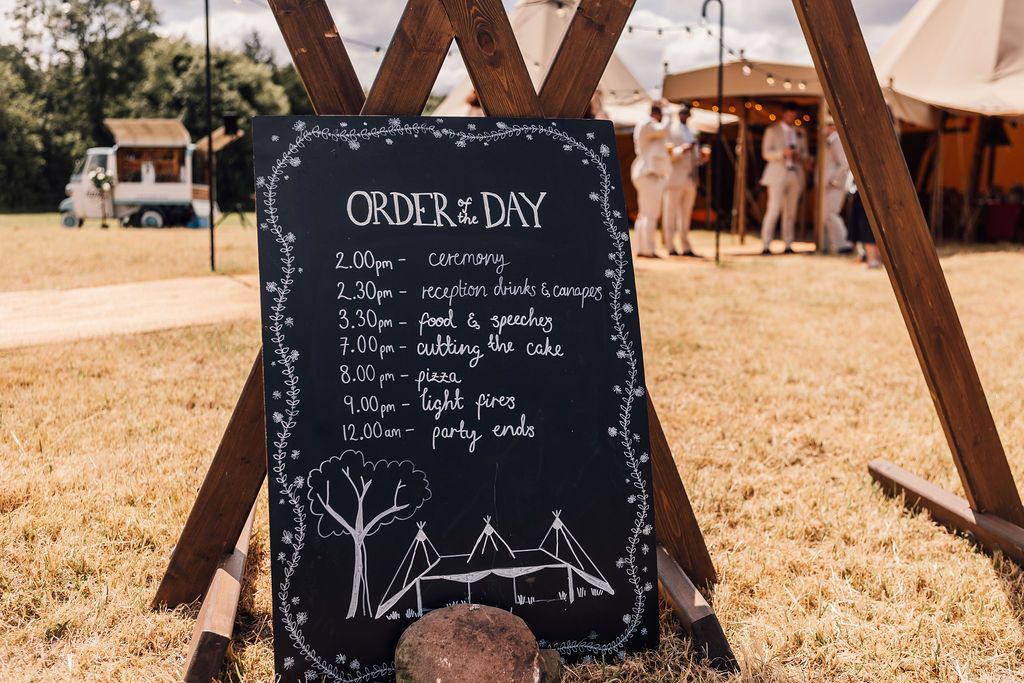 ORDER of the DAY
2.00pm - ceremony
2.30pm - reception drinks & canapes
3.30pm - food & speeches
7.00pm - cutting the cake
8.00pm - pizza
9.00pm - light fires
12.00am - party ends